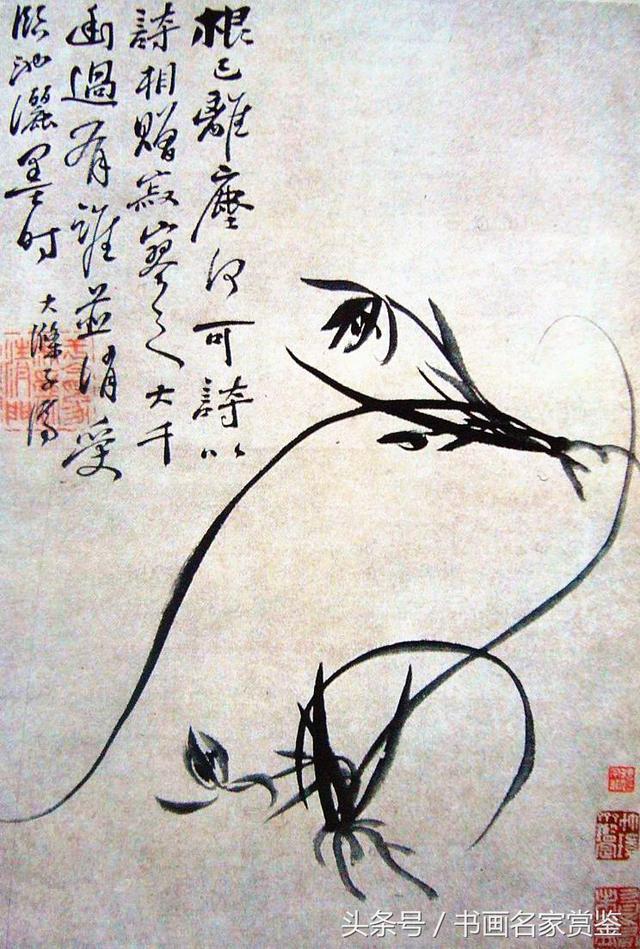 根已離塵何可詩以
詩相贈寂寥之大千
幽過有誰並消受
臨池灑墨时
大滌子濟
头条号 / 书画名家赏鉴